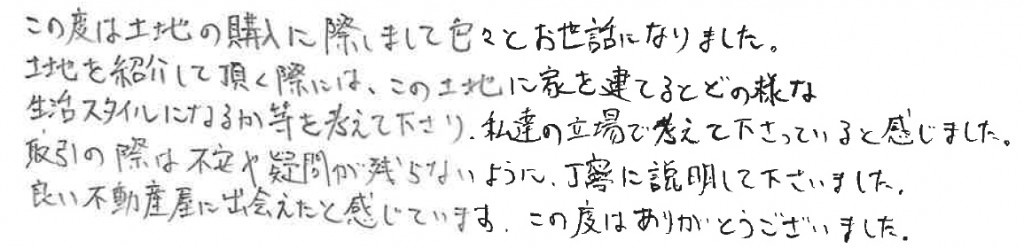 この度は土地の購入に際しまして色々とお世話になりました。
土地を紹介して頂く際には、この土地に家を建てるとどの様な
生活スタイルになるか等を考えて下さり、私達の立場で考えて下さっていると感じました。
取引の際は不安や疑問が残らないように、丁寧に説明して下さいました。
良い不動産屋に出会えたと感じています。この度はありがとうございました。